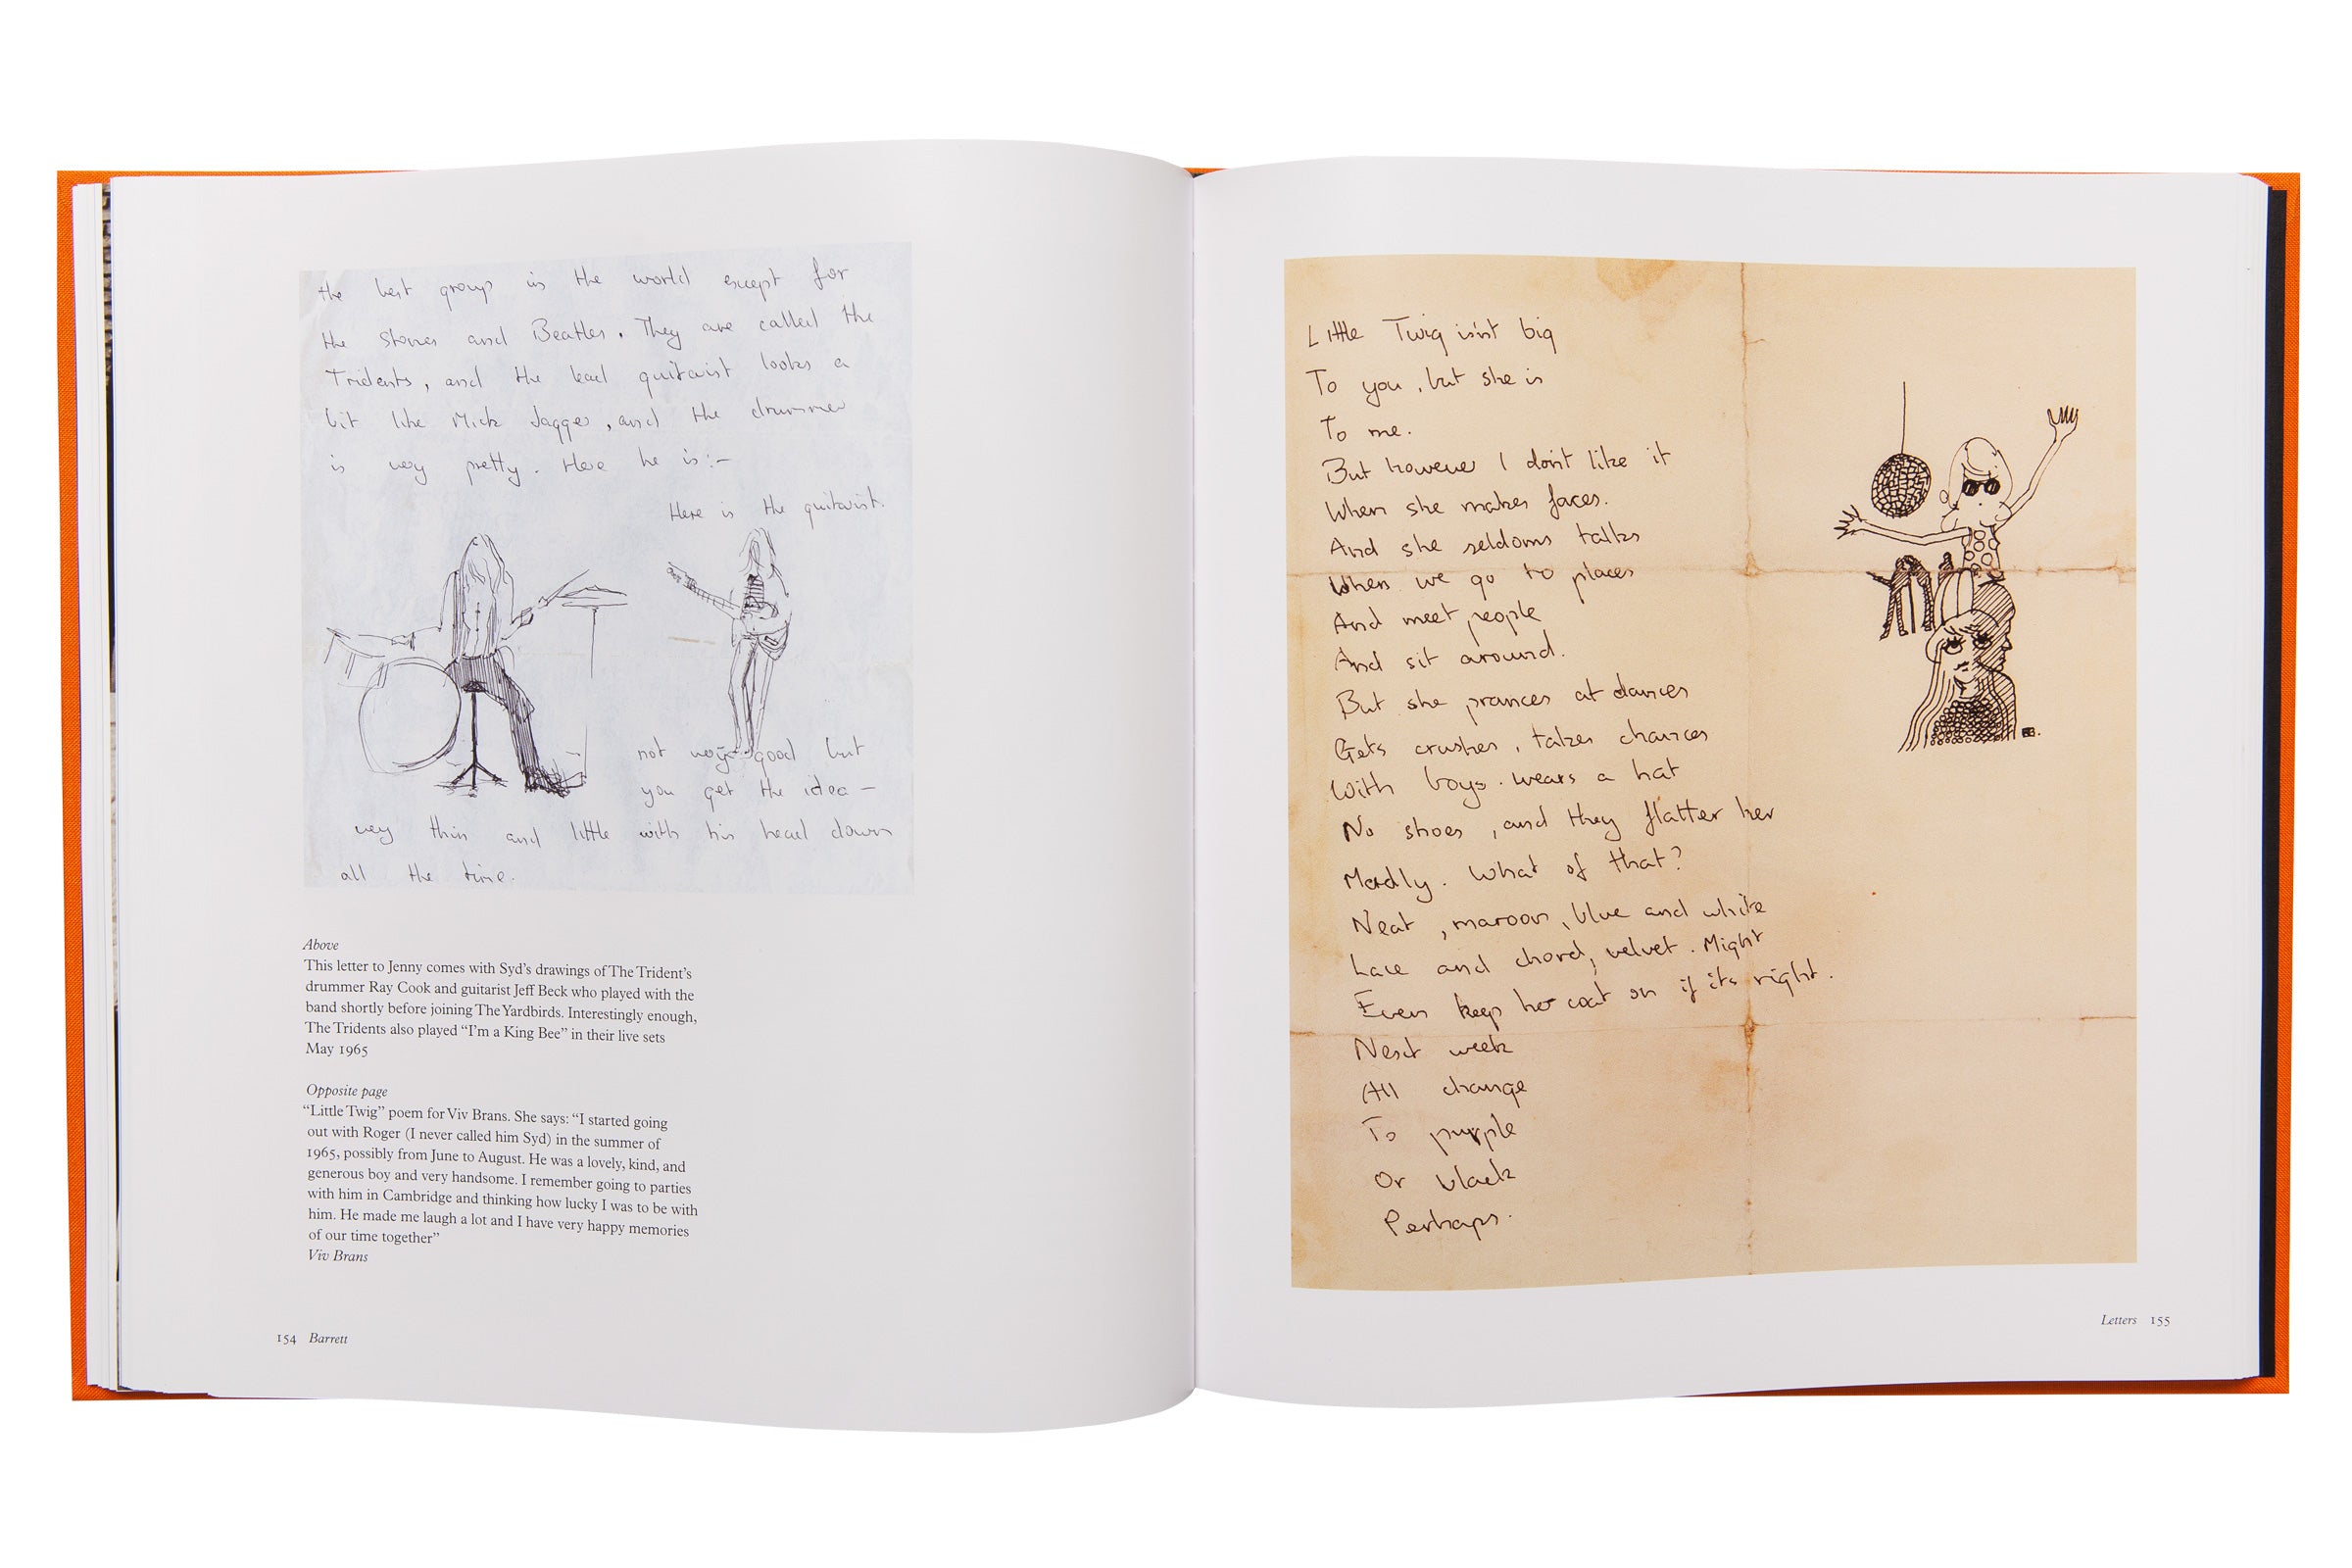 the best group in the world except for
the Stones and Beatles. They are called the
Tridents, and the lead guitarist looks a
bit like Mick Jagger, and the drummer
is very pretty. Here he is:—
Here is the guitarist.
not very good but
you get the idea —
very thin and little with his head down
all the time.
Above
This letter to Jenny comes with Syd's drawings of The Trident's
drummer Ray Cook and guitarist Jeff Beck who played with the
band shortly before joining The Yardbirds. Interestingly enough,
The Tridents also played “I'm a King Bee” in their live sets
May 1965
Opposite page
“Little Twig” poem for Viv Brans. She says: “I started going
out with Roger (I never called him Syd) in the summer of
1965, possibly from June to August. He was a lovely, kind, and
generous boy and very handsome. I remember going to parties
with him in Cambridge and thinking how lucky I was to be with
him. He made me laugh a lot and I have very happy memories
of our time together”
Viv Brans
154 Barrett
Little Twig isn't big
To you, but she is
To me.
But however I don't like it
When she makes faces.
And she seldom talks
When we go to places
And meet people
And sit around.
But she prances at dances
Gets crushes, takes chances
With boys. wears a hat
No shoes, and they flatter her
Madly. What of that?
Neat, maroon, blue and white
Lace and chord, velvet. Might
Even keep her coat on if its right.
Next week
All change
To purple
Or black
Perhaps.
Letters 155